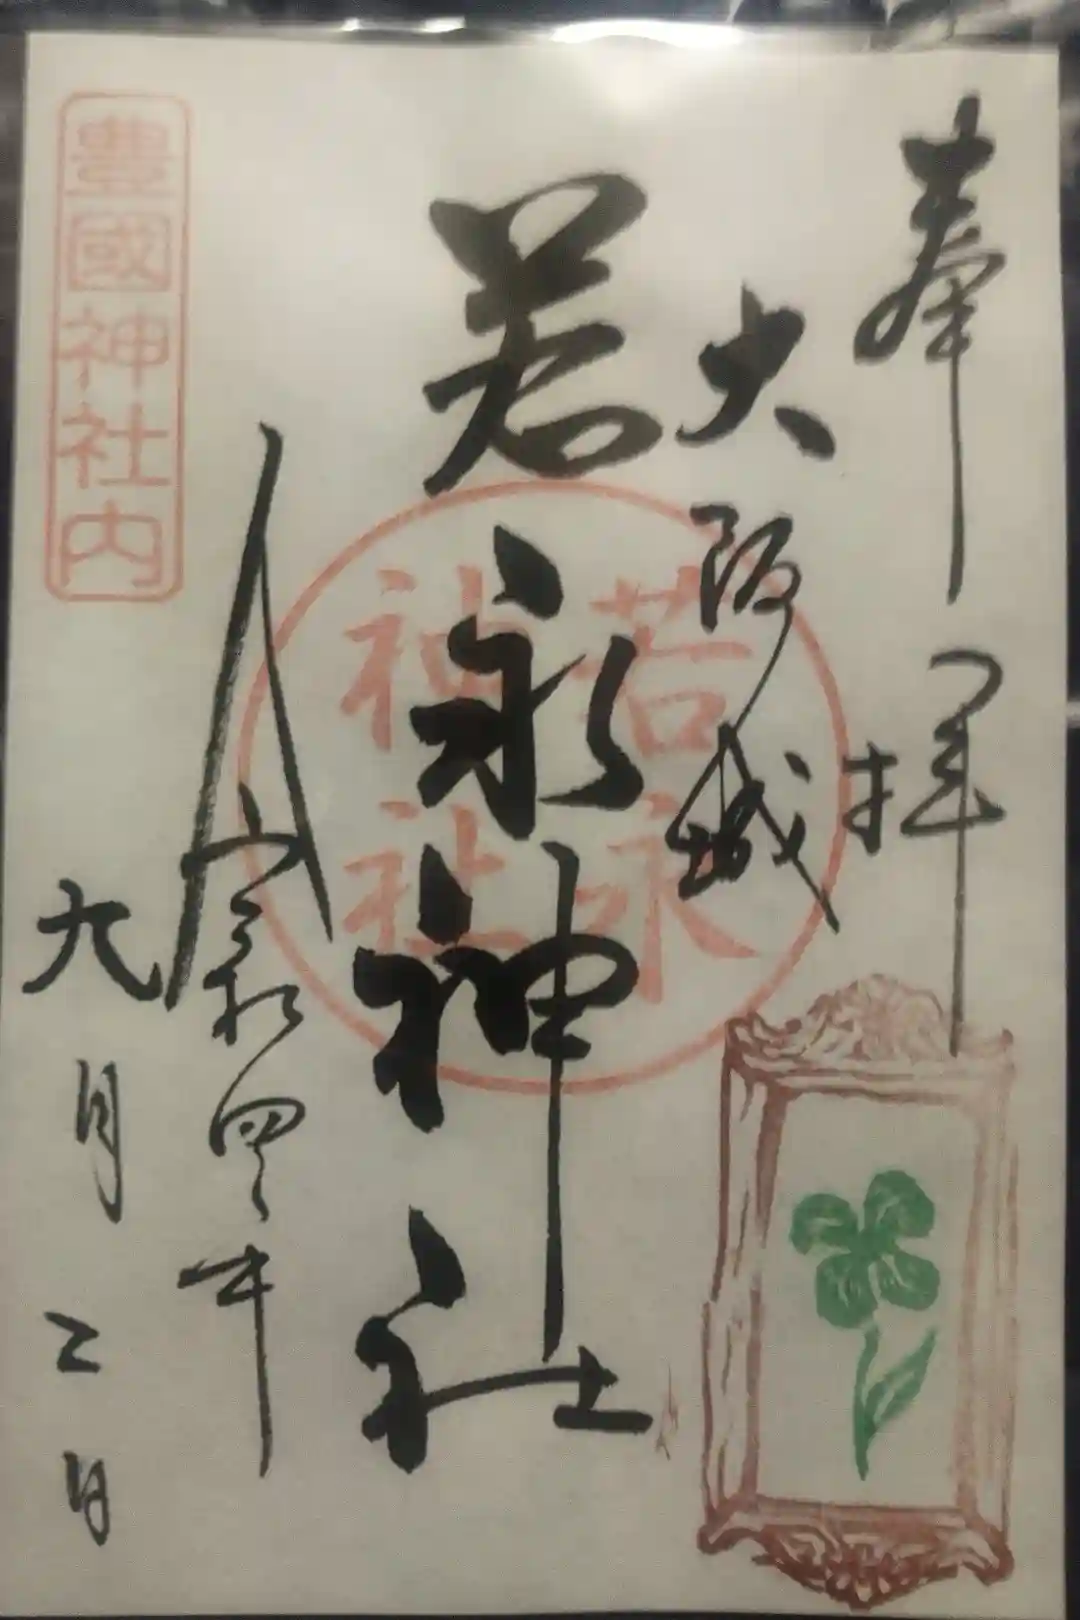 奉拝
大阪城
若永神社
若永
神社
令和四年
九月二日
豊國神社内